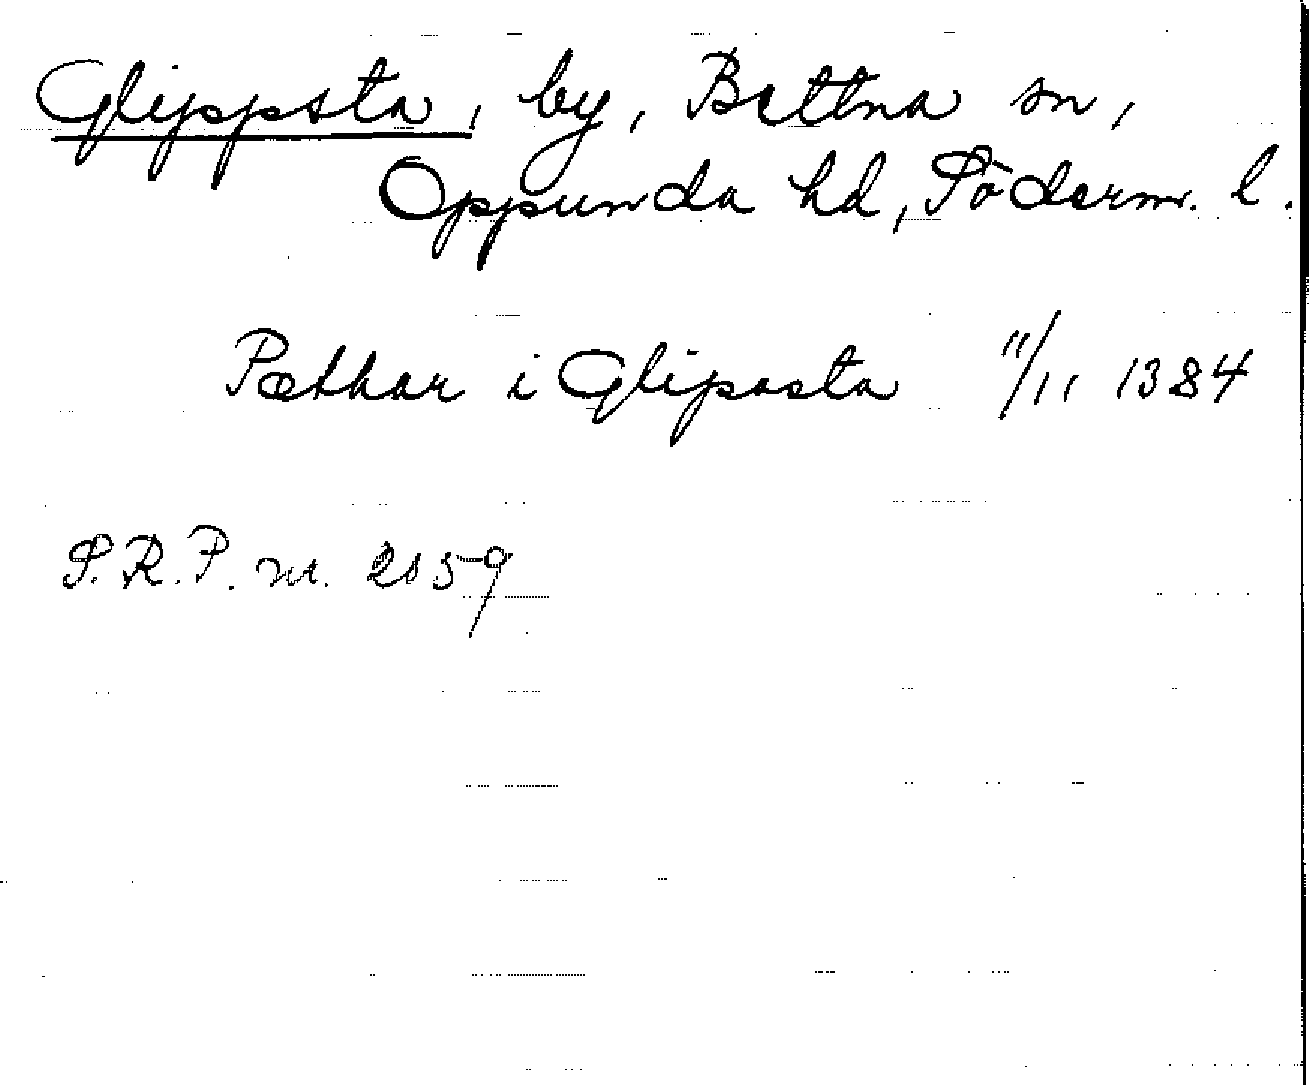 Glippsta, by, Bettna sn,
Oppunda hd, Söderm. l.
Pæthar i Glipasta 11/11 1384
S.R.P. nr. 2059